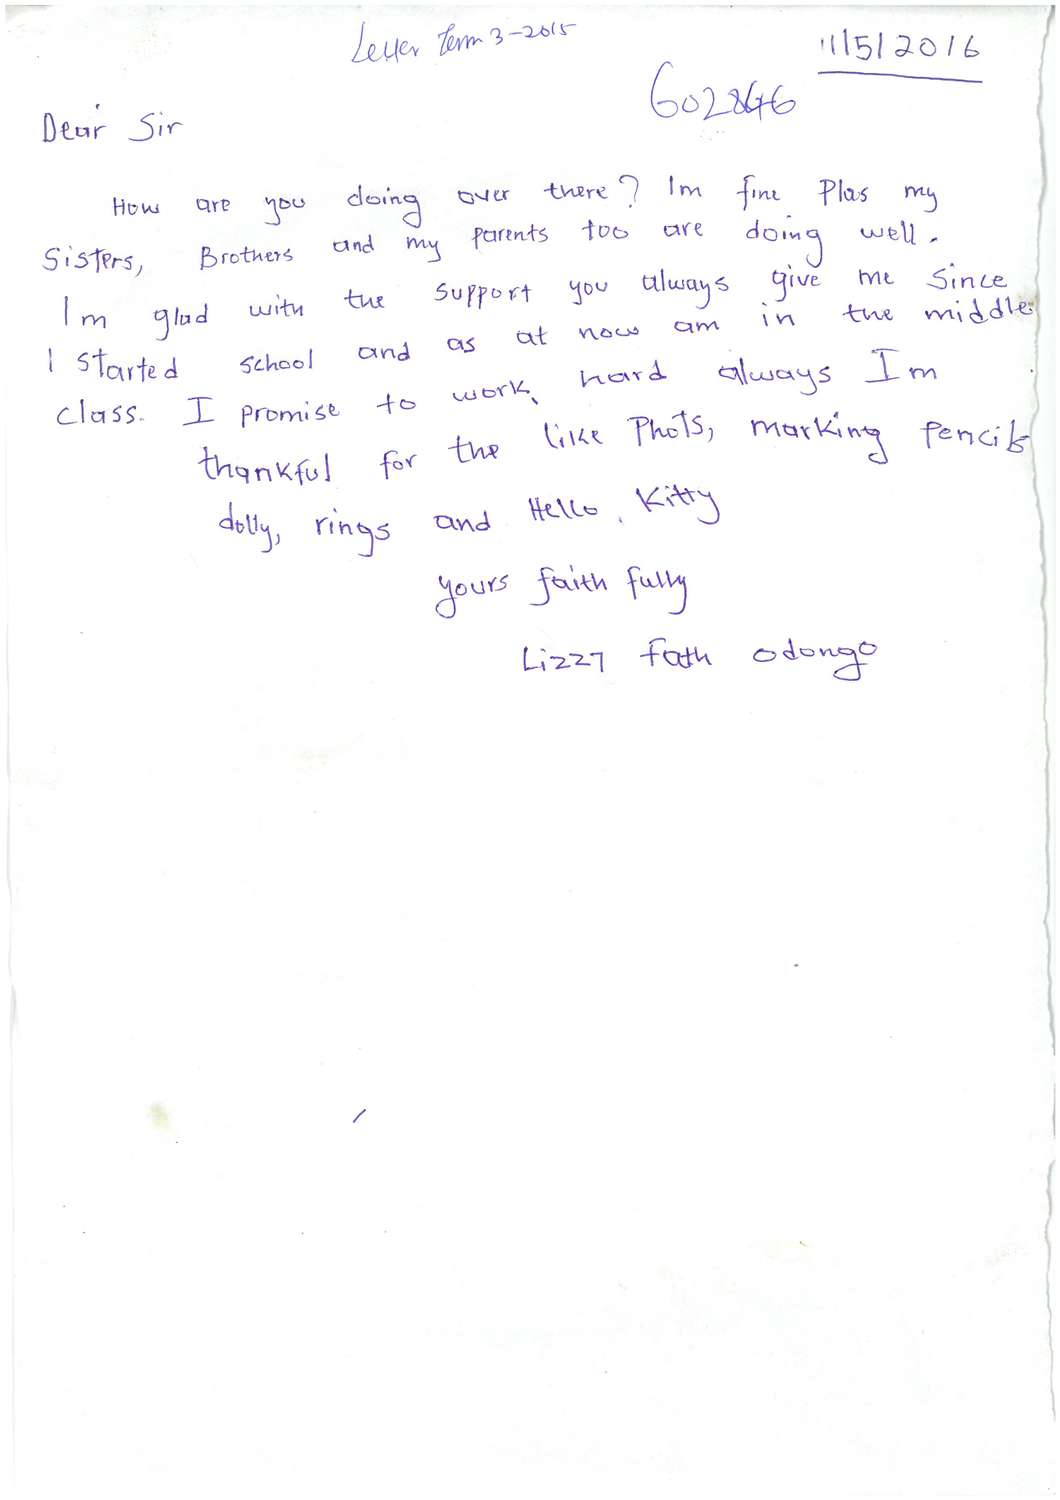 Letter Term 3-2015
11/5/2016
602846
Dear Sir
How are you doing over there? Im fine Plas my
Sisters, Brothers and my parents too are doing well.
Im glad with the support you always give me since
I started school and as at now am in the middle
class. I promise to work hard always Im
thankful for the like Phots, marking pencils
dolly, rings and Hello Kitty
yours faith fully
Lizzy fath odongo